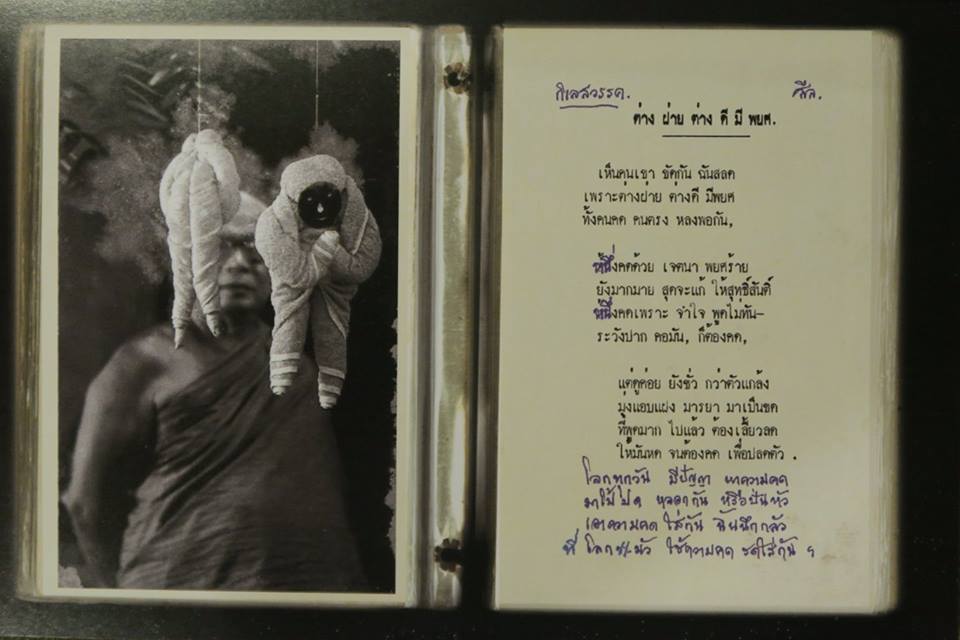 กิเลสวรรค. ศีล.
ต่าง ฝ่าย ต่าง คี มี พยศ.
เห็นคนเขา ขัดกัน ฉันสลด
เพราะต่างฝ่าย ต่างคี มีพยศ
ทั้งคนคด คนตรง หลงพอกัน,
หนึ่งคดด้วย เจตนา พยศร้าย
ยังมากมาย สุดจะแก้ ให้สุทธิ์สันติ์
หนึ่งคดเพราะ จำใจ พูดไม่ทัน-
ระวังปาก คอมัน, ก็ต้องคด,
แต่ดูค่อย ยังชั่ว กว่าตัวแกล้ง
มุ่งแอบแฝง มารยา มาเป็นขด
ที่พูดมาก ไปแล้ว ต้องเลี้ยวลด
ให้มันหด จนต้องคด เพื่อปลดตัว .
โลกทุกวัน มีปัญญา หาความคด
มาใช้ปด หลอกกัน หรือปั่นหัว
เอาความคด ใส่กัน ฉันนึกกลัว
ที่ โลก มัว ใช้ความคด ใส่กัน ฯ